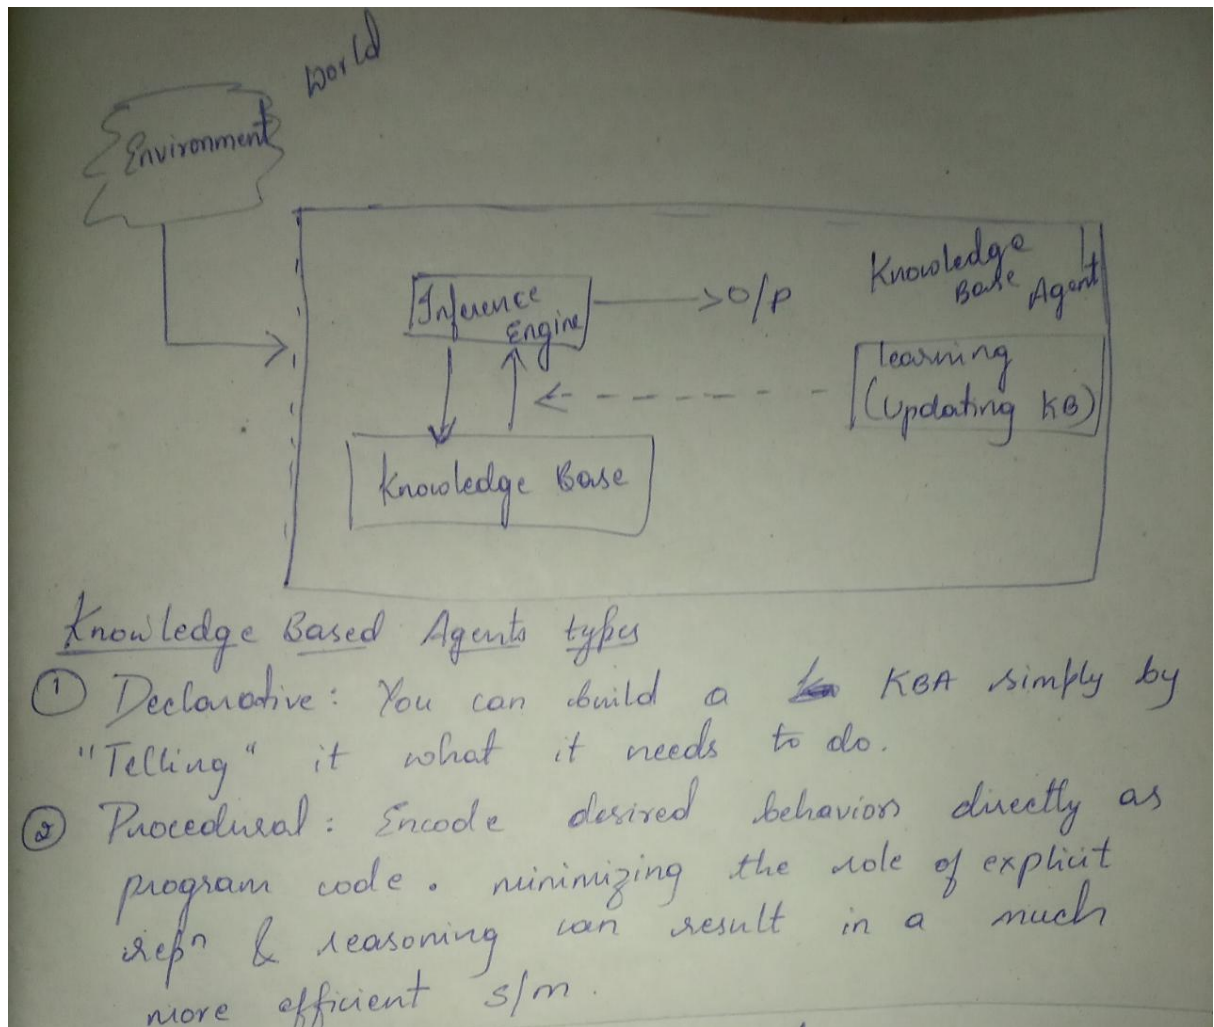 World
Environment
Knowledge
Base Agent
Inference
Engine
O/P
learning
(Updating KB)
Knowledge Base
Knowledge Based Agents types
① Declarative: You can build a KBA simply by
"Telling" it what it needs to do.
② Procedural: Encode desired behaviors directly as
program code. minimizing the role of explicit
repⁿ & reasoning can result in a much
more efficient s/m.